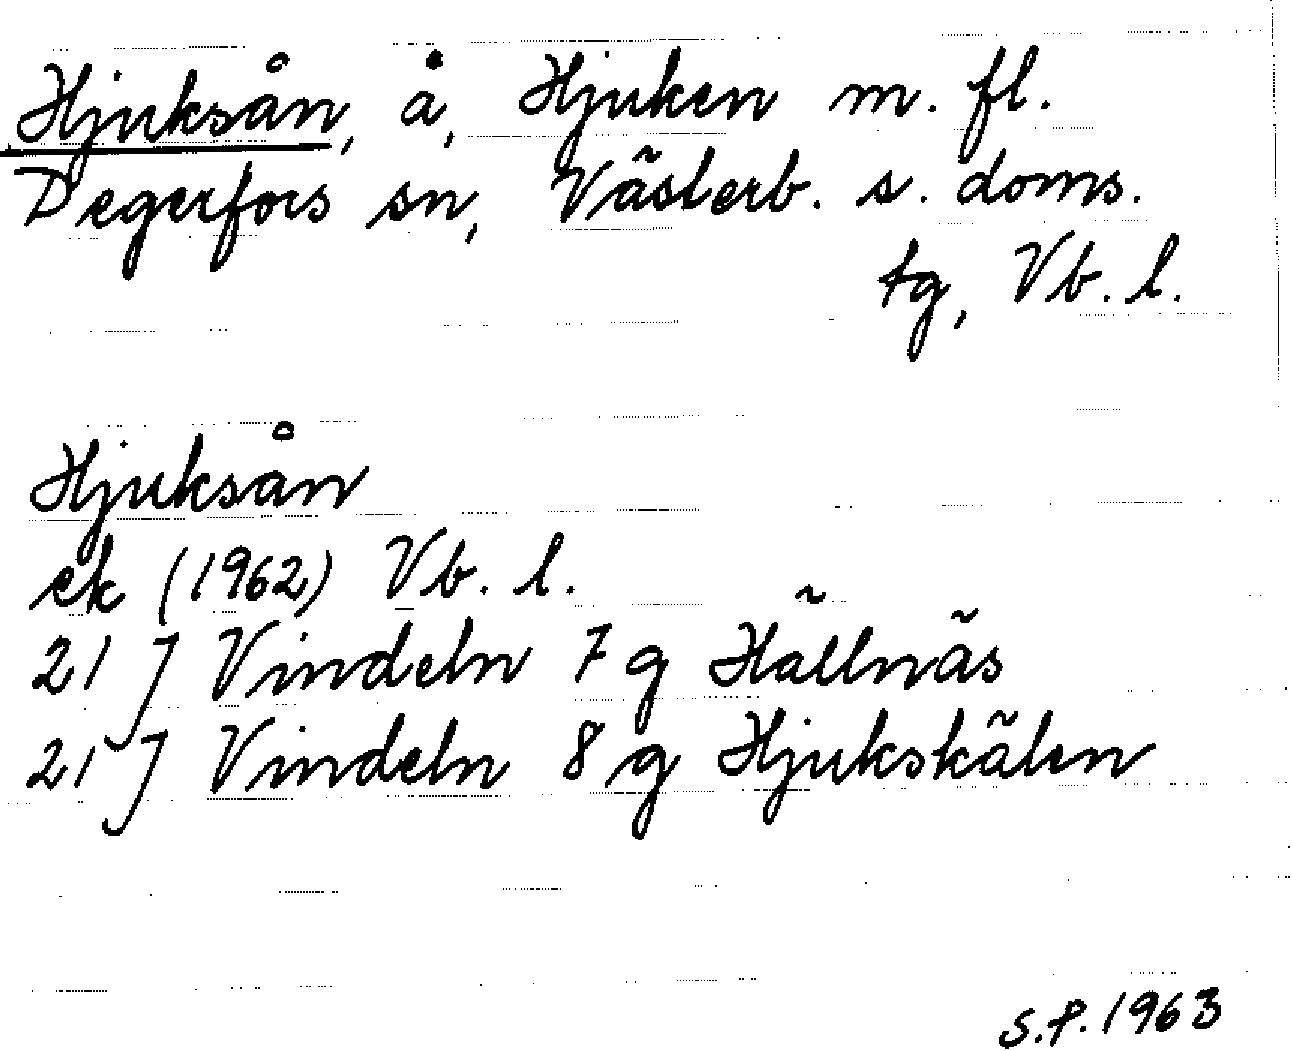 Hjuksån, å, Hjuken m. fl.
Degerfors sn, Västerb. s. doms.
tg, Vb. l.
Hjuksån
ek (1962) Vb. l.
21 J Vindeln 7 g Hällnäs
21 J Vindeln 8 g Hjukskälen
S.P. 1963